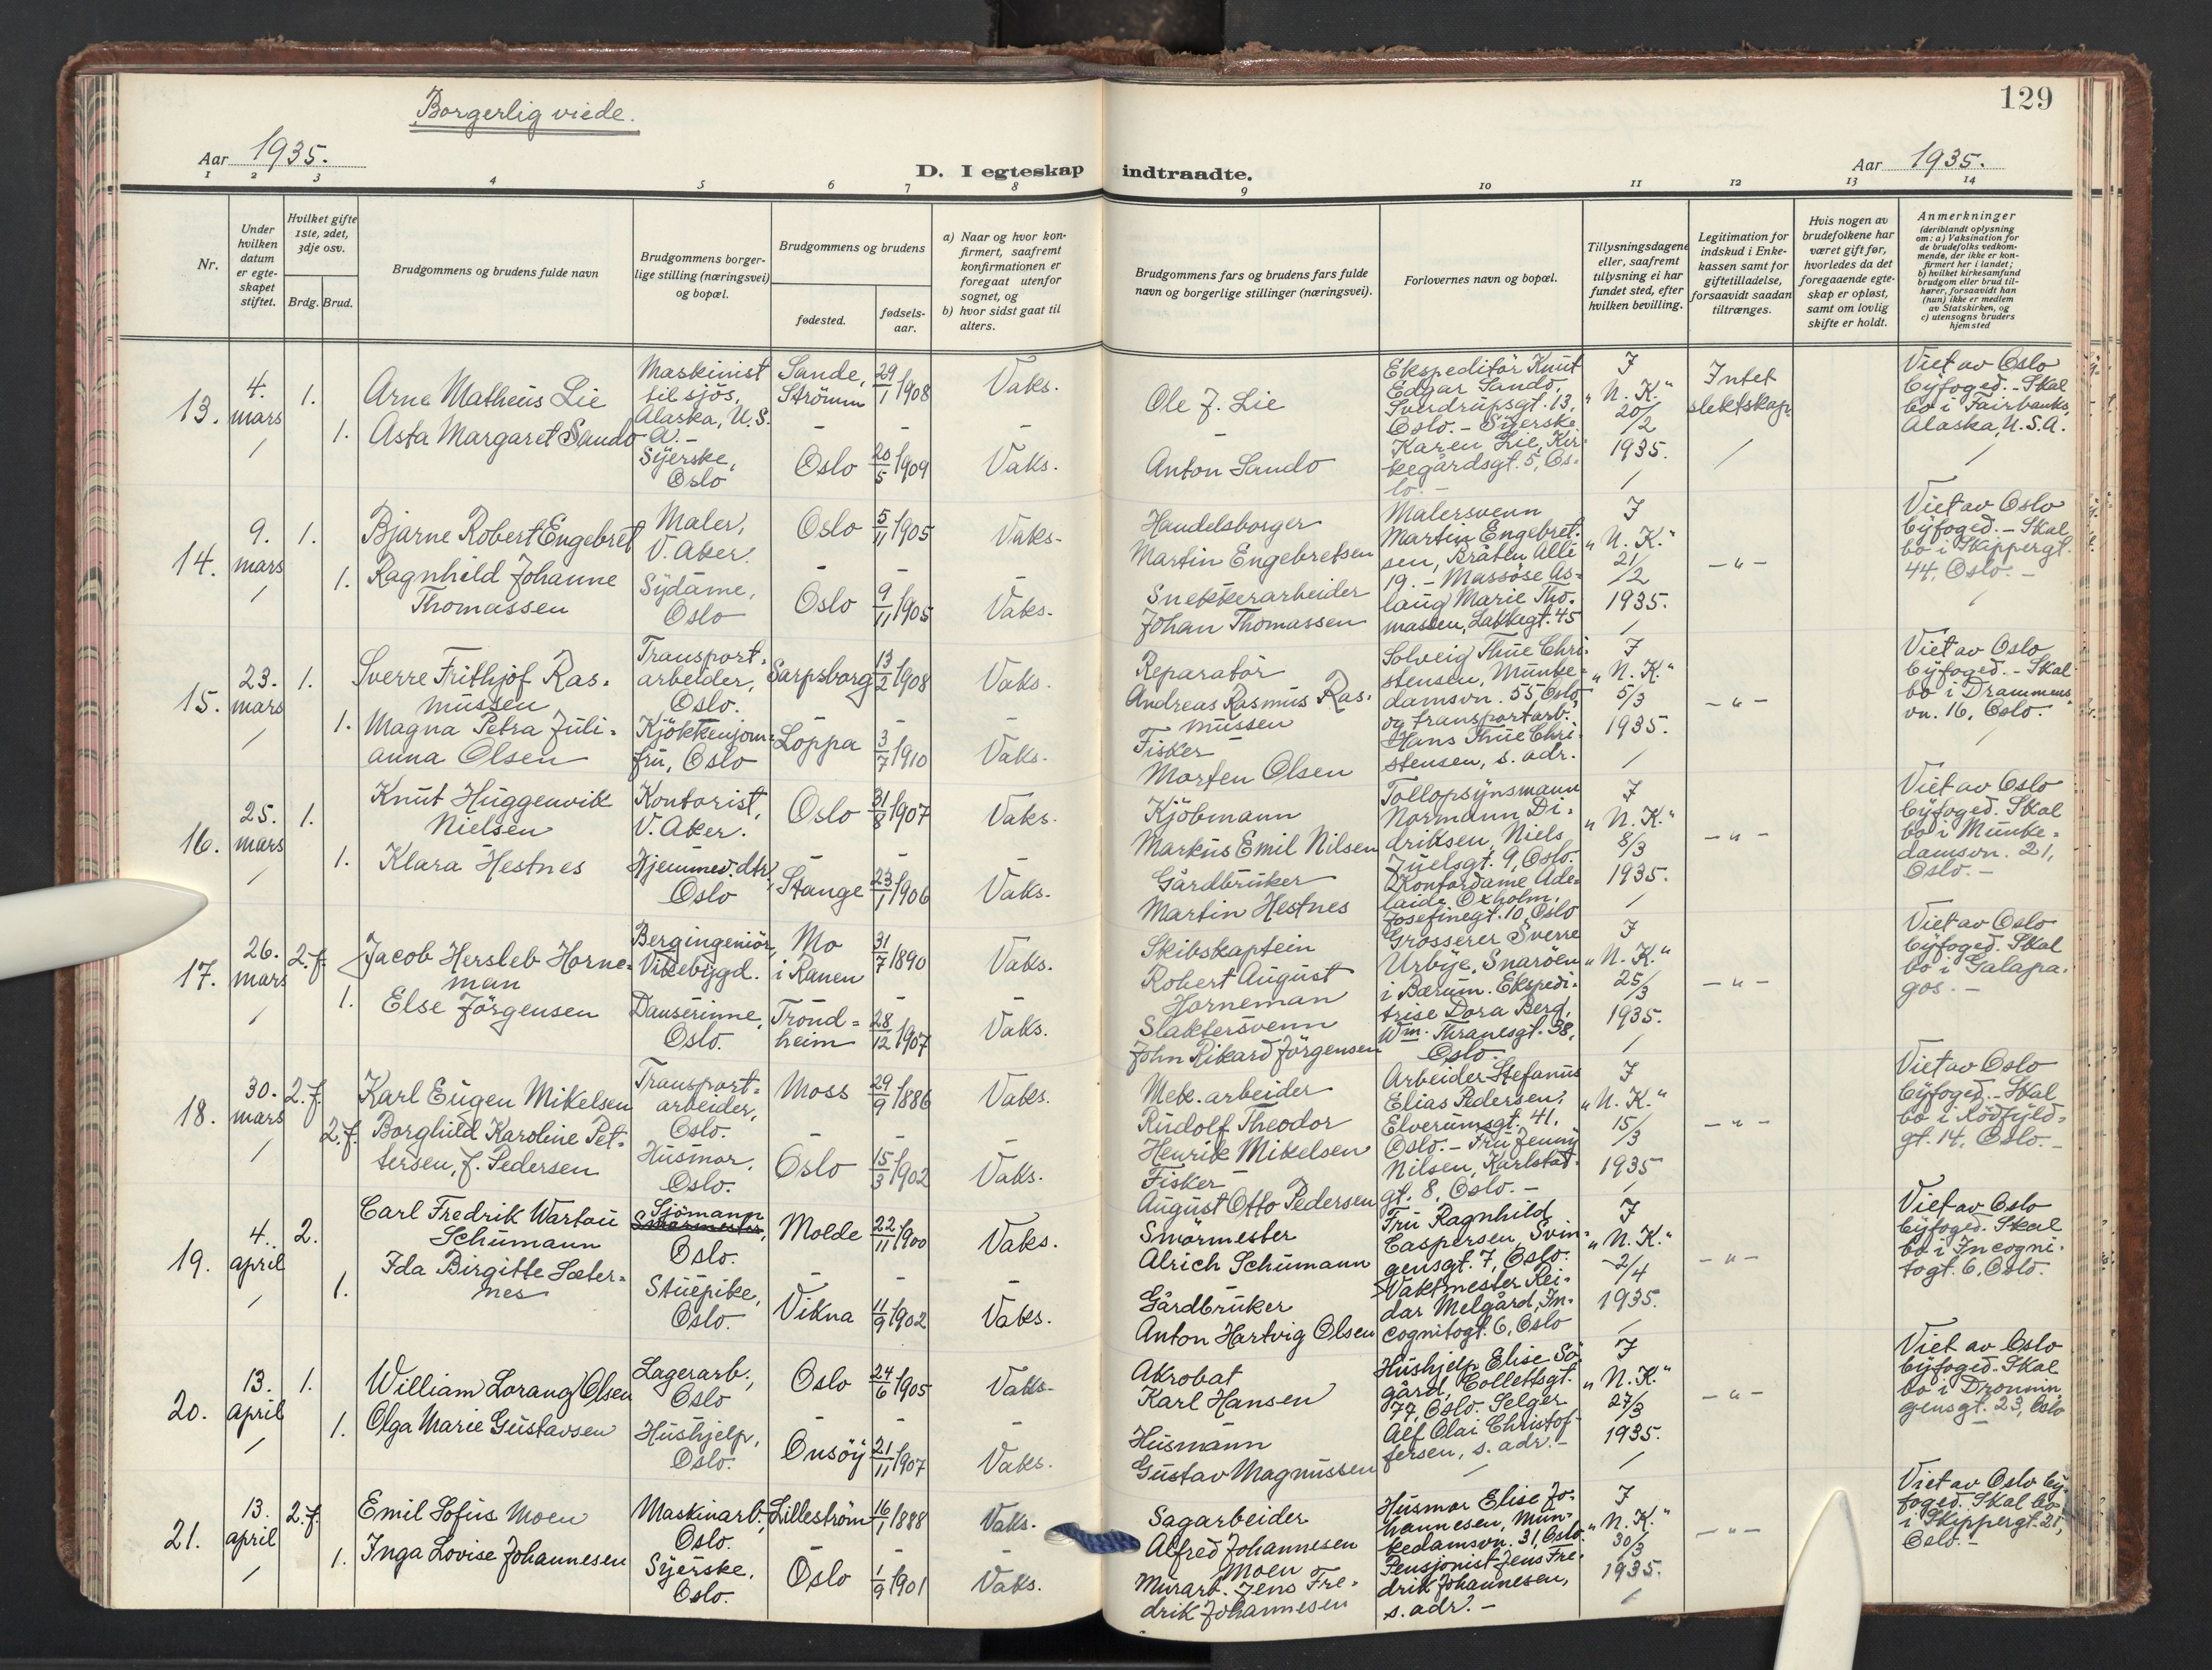 Borgerlig viede.
129
Aar 1935.
D. I egteskap indtraadte.
Aar 1935.
1 2 3 4 5 6 7 8 9 10 11 12 13 14
Nr.
Under hvilken datum er egteskapet stiftet.
Hvilket gifte 1ste, 2det, 3dje osv.
Brdg. Brud.
Brudgommens og brudens fulde navn
Brudgommens borgerlige stilling (næringsvei) og bopæl.
Brudgommens og brudens
fødested.
fødselsaar.
a) Naar og hvor konfirmert, saafremt konfirmationen er foregaat utenfor sognet, og
b) hvor sidst gaat til alters.
Brudgommens fars og brudens fars fulde navn og borgerlige stillinger (næringsvei).
Forlovernes navn og bopæl.
Tillysningsdagene eller, saafremt tillysning ei har fundet sted, efter hvilken bevilling.
Legitimation for indskud i Enkekassen samt for giftetilladelse, forsaavidt saadan tiltrænges.
Hvis nogen av brudefolkene har været gift før, hvorledes da det foregaaende egteskap er opløst, samt om lovlig skifte er holdt.
Anmerkninger (deriblandt oplysning om: a) Vaksination for de brudefolks vedkommende, der ikke er konfirmert her i landet; b) hvilket kirkesamfund brudgom eller brud tilhører, forsaavidt han (hun) ikke er medlem av Statskirken, og c) utensogns bruders hjemsted
13.
4. mars
1.
Arne Matheus Lie
Maskinist til sjös, Alaska, U.S.A. -
Sande, Strömm
29/1 1908
Vaks.
Ole J. Lie
1.
Asta Margaret Sando
Syerske, Oslo
Oslo
20/5 1909
Vaks.
Anton Sando
Ekspeditör Knut Edgar Sando, Sverdrupsgt. 13, Oslo. - Syerske Karen Lie, Kirkegårdsgt. 5, Oslo. -
I "N. K." 20/2 1935.
Intet slektskap.
Viet av Oslo byfoged. - Skal bo i Fairbanks, Alaska, U.S.A.
14.
9. mars
1.
Bjarne Robert Engebret
Maler, V. Aker.
Oslo
5/11 1905
Vaks.
Handelsborger Martin Engebretsen
1.
Ragnhild Johanne Thomassen
Sydame, Oslo
Oslo
9/11 1905
Vaks.
Snekkerarbeider Johan Thomassen
Malersvenn Martin Engebretsen, Bråten Allé 19. - Massöse Aslaug Marie Thomassen, Lakkegt. 45
I "N. K." 21/2 1935.
- " -
Viet av Oslo byfoged. - Skal bo i Skippergt. 44, Oslo. -
15.
23. mars
1.
Sverre Frithjof Rasmussen
Transportarbeider, Oslo.
Sarpsborg
13/2 1908
Vaks.
Reparatör Andreas Rasmus Rasmussen
1.
Magna Petra Julianna Olsen
Kjökkenjomfru, Oslo
Loppa
3/7 1910
Vaks.
Fisker Morten Olsen
Solveig Thue Christensen, Munkedamsvn. 55 Oslo, og transportarb. Hans Thue Christensen, s. adr.
I "N. K." 5/3 1935.
- " -
Viet av Oslo byfoged. - Skal bo i Drammensvn. 16, Oslo.
16.
25. mars
1.
Knut Huggenvik Nielsen
Kontorist, V. Aker.
Oslo
31/8 1907
Vaks.
Kjöbmann Markus Emil Nilsen
1.
Klara Hestnes
Hjemmev. dtr, Oslo
Stange
23/1 1906
Vaks.
Gårdbruker Martin Hestnes
Tollopsynsmann Normann Didriksen, Niels Juelsgt. 9, Oslo. Kontordame Adelaide Oxholm, Josefinegt. 10, Oslo
I "N. K." 8/3 1935.
- " -
Viet av Oslo byfoged. Skal bo i Munkedamsvn. 21, Oslo. -
17.
26. mars
2. f.
Jacob Hersleb Horneman
Bergingeniör, Vikebygd.
Mo i Ranen
31/7 1890
Vaks.
Skibskaptein Robert August Horneman
1.
Else Jörgensen
Danserinne, Oslo.
Trondheim
28/12 1907
Vaks.
Slaktersvenn John Rikard Jörgensen
Grosserer Sverre Urbye, Snaröen i Bærum. Ekspeditrise Dora Berg, Wm. Thranesgt. 38, Oslo.
I "N. K." 25/3 1935.
- " -
Viet av Oslo byfoged. Skal bo i Galapagos. -
18.
30. mars
2. f.
Karl Eugen Mikelsen
Transportarbeider, Oslo.
Moss
29/9 1886
Vaks.
Mek. arbeider Rudolf Theodor Henrik Mikelsen
2. f.
Borghild Karoline Pettersen, f. Pedersen
Husmor, Oslo.
Oslo
15/3 1902
Vaks.
Fisker August Otto Pedersen
Arbeider Stefanus Elias Pedersen, Elverumsgt. 41, Oslo. - Fru Jenny Nilsen, Karlstadgt. 8, Oslo. -
I "N. K." 15/3 1935
- " -
Viet av Oslo byfoged. - Skal bo i Rödfyldgt. 14, Oslo. -
19.
4. april
2.
Carl Fredrik Wartau Schumann
Sjömann Smörmester, Oslo.
Molde
22/11 1900
Vaks.
Smörmester Alrich Schumann
1.
Ida Birgitte Sæternes
Stuepike, Oslo.
Vikna
11/9 1902
Vaks.
Gårdbruker Anton Hartvig Olsen
Fru Ragnhild Caspersen, Svingensgt. 7, Oslo. Vaktmester Reidar Melgård, Incognitogt. 6, Oslo
I "N. K." 2/4 1935.
- " -
Viet av Oslo byfoged. Skal bo i Incognitogt. 6, Oslo.
20.
13. april
1.
William Lorang Olsen
Lagerarb., Oslo
Oslo
24/6 1905
Vaks.
Akrobat Karl Hansen
1.
Olga Marie Gustavsen
Hushjelp, Oslo.
Onsöy
21/11 1907
Vaks.
Husmann Gustav Magnussen
Hushjelp Elise Sögård, Collettsgt. 77, Oslo. Selger Alf Olai Christoffersen, s. adr. -
I "N. K." 27/3 1935.
- " -
Viet av Oslo byfoged. Skal bo i Dronningensgt. 23, Oslo
21.
13. april
2. f.
Emil Sofus Moen
Maskinarb., Oslo.
Lilleström
16/1 1888
Vaks.
Sagarbeider Alfred Johannesen Moen
1.
Inga Lovise Johannesen
Syerske, Oslo.
Oslo
1/9 1901
Vaks.
Murarb. Jens Fredrik Johannesen
Husmor Elise Johannesen, Munkedamsvn. 31, Oslo. Pensjonist Jens Fredrik Johannesen, s. adr. -
I "N. K." 30/3 1935.
- " -
Viet av Oslo byfoged. Skal bo i Skippergt. 21, Oslo. -